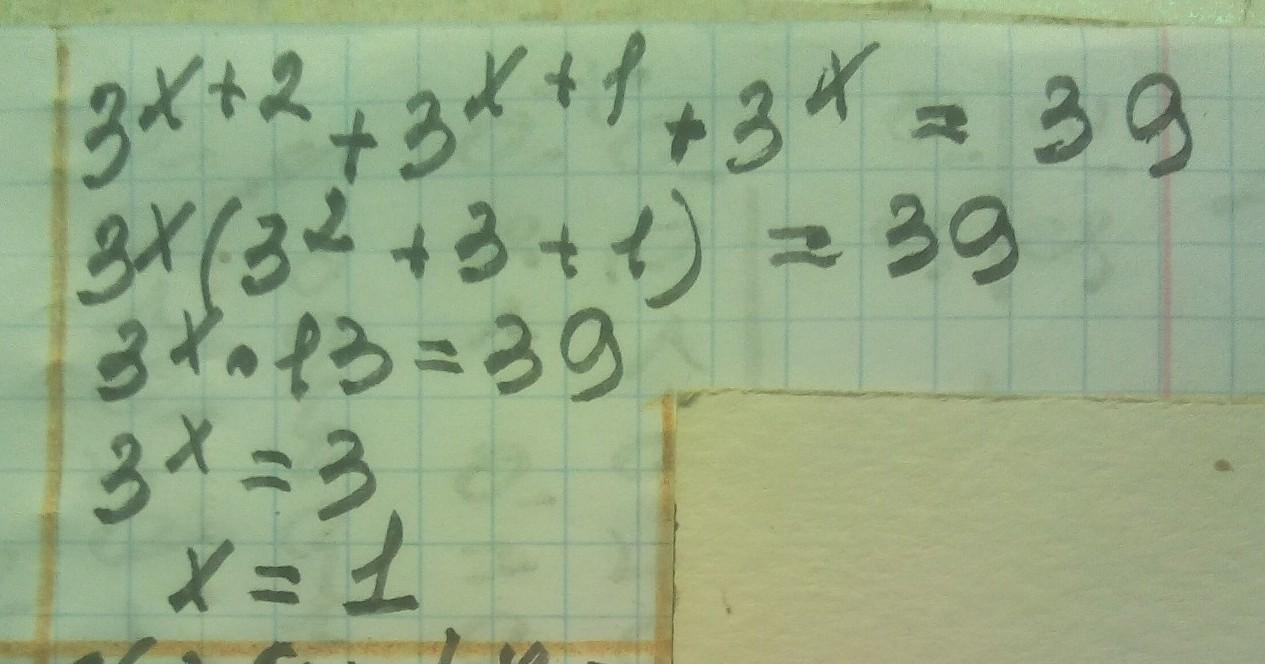 3^{x+2} + 3^{x+1} + 3^x = 39
3^x(3^2 + 3 + 1) = 39
3^x · 13 = 39
3^x = 3
x = 1